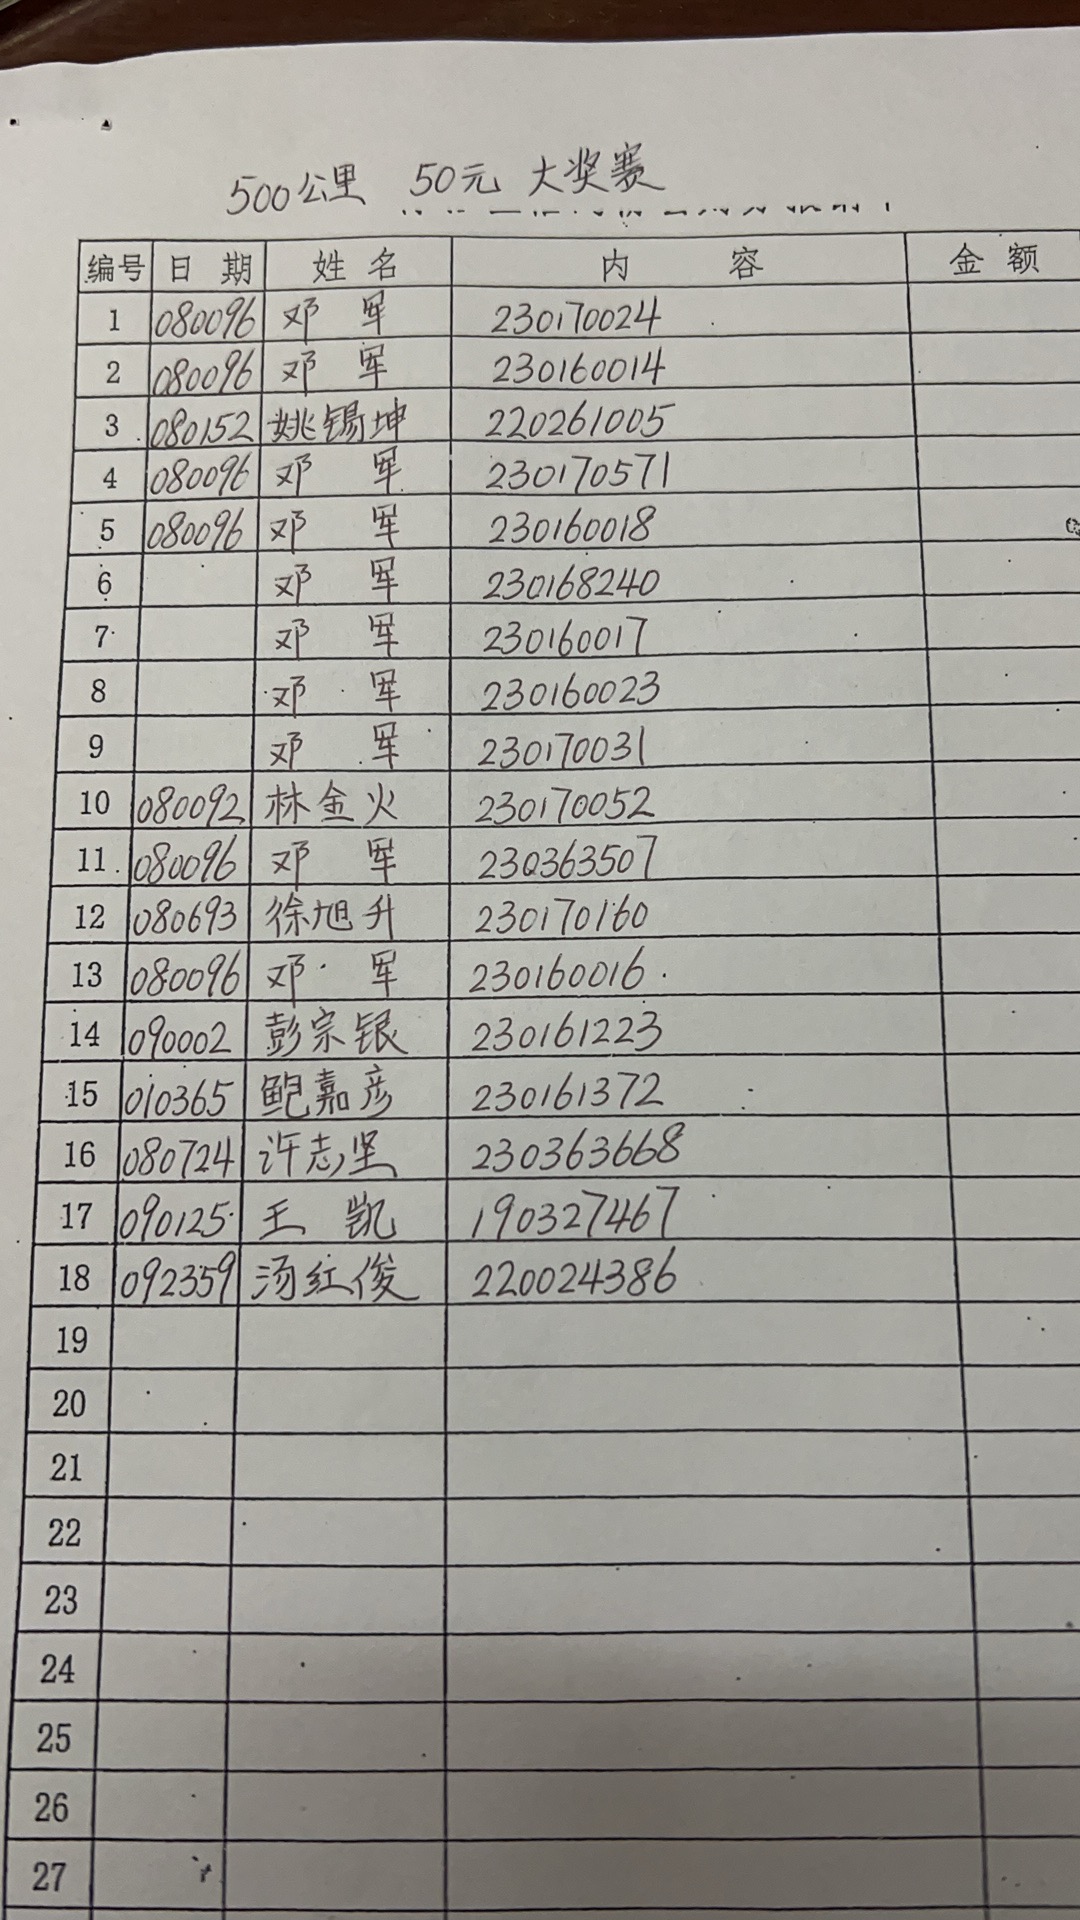 500公里 50元 大奖赛
编号 日期 姓名 内容 金额
1 080096 邓军 230170024
2 080096 邓军 230160014
3 080152 姚锡坤 220261005
4 080096 邓军 230170571
5 080096 邓军 230160018
6 邓军 230168240
7 邓军 230160017
8 邓军 230160023
9 邓军 230170031
10 080092 林金火 230170052
11 080096 邓军 230363507
12 080693 徐旭升 230170160
13 080096 邓军 230160016
14 090002 彭宗银 230161223
15 010365 鲍嘉彦 230161372
16 080724 许志坚 230363668
17 090125 王凯 190327467
18 092359 汤红俊 220024386
19
20
21
22
23
24
25
26
27